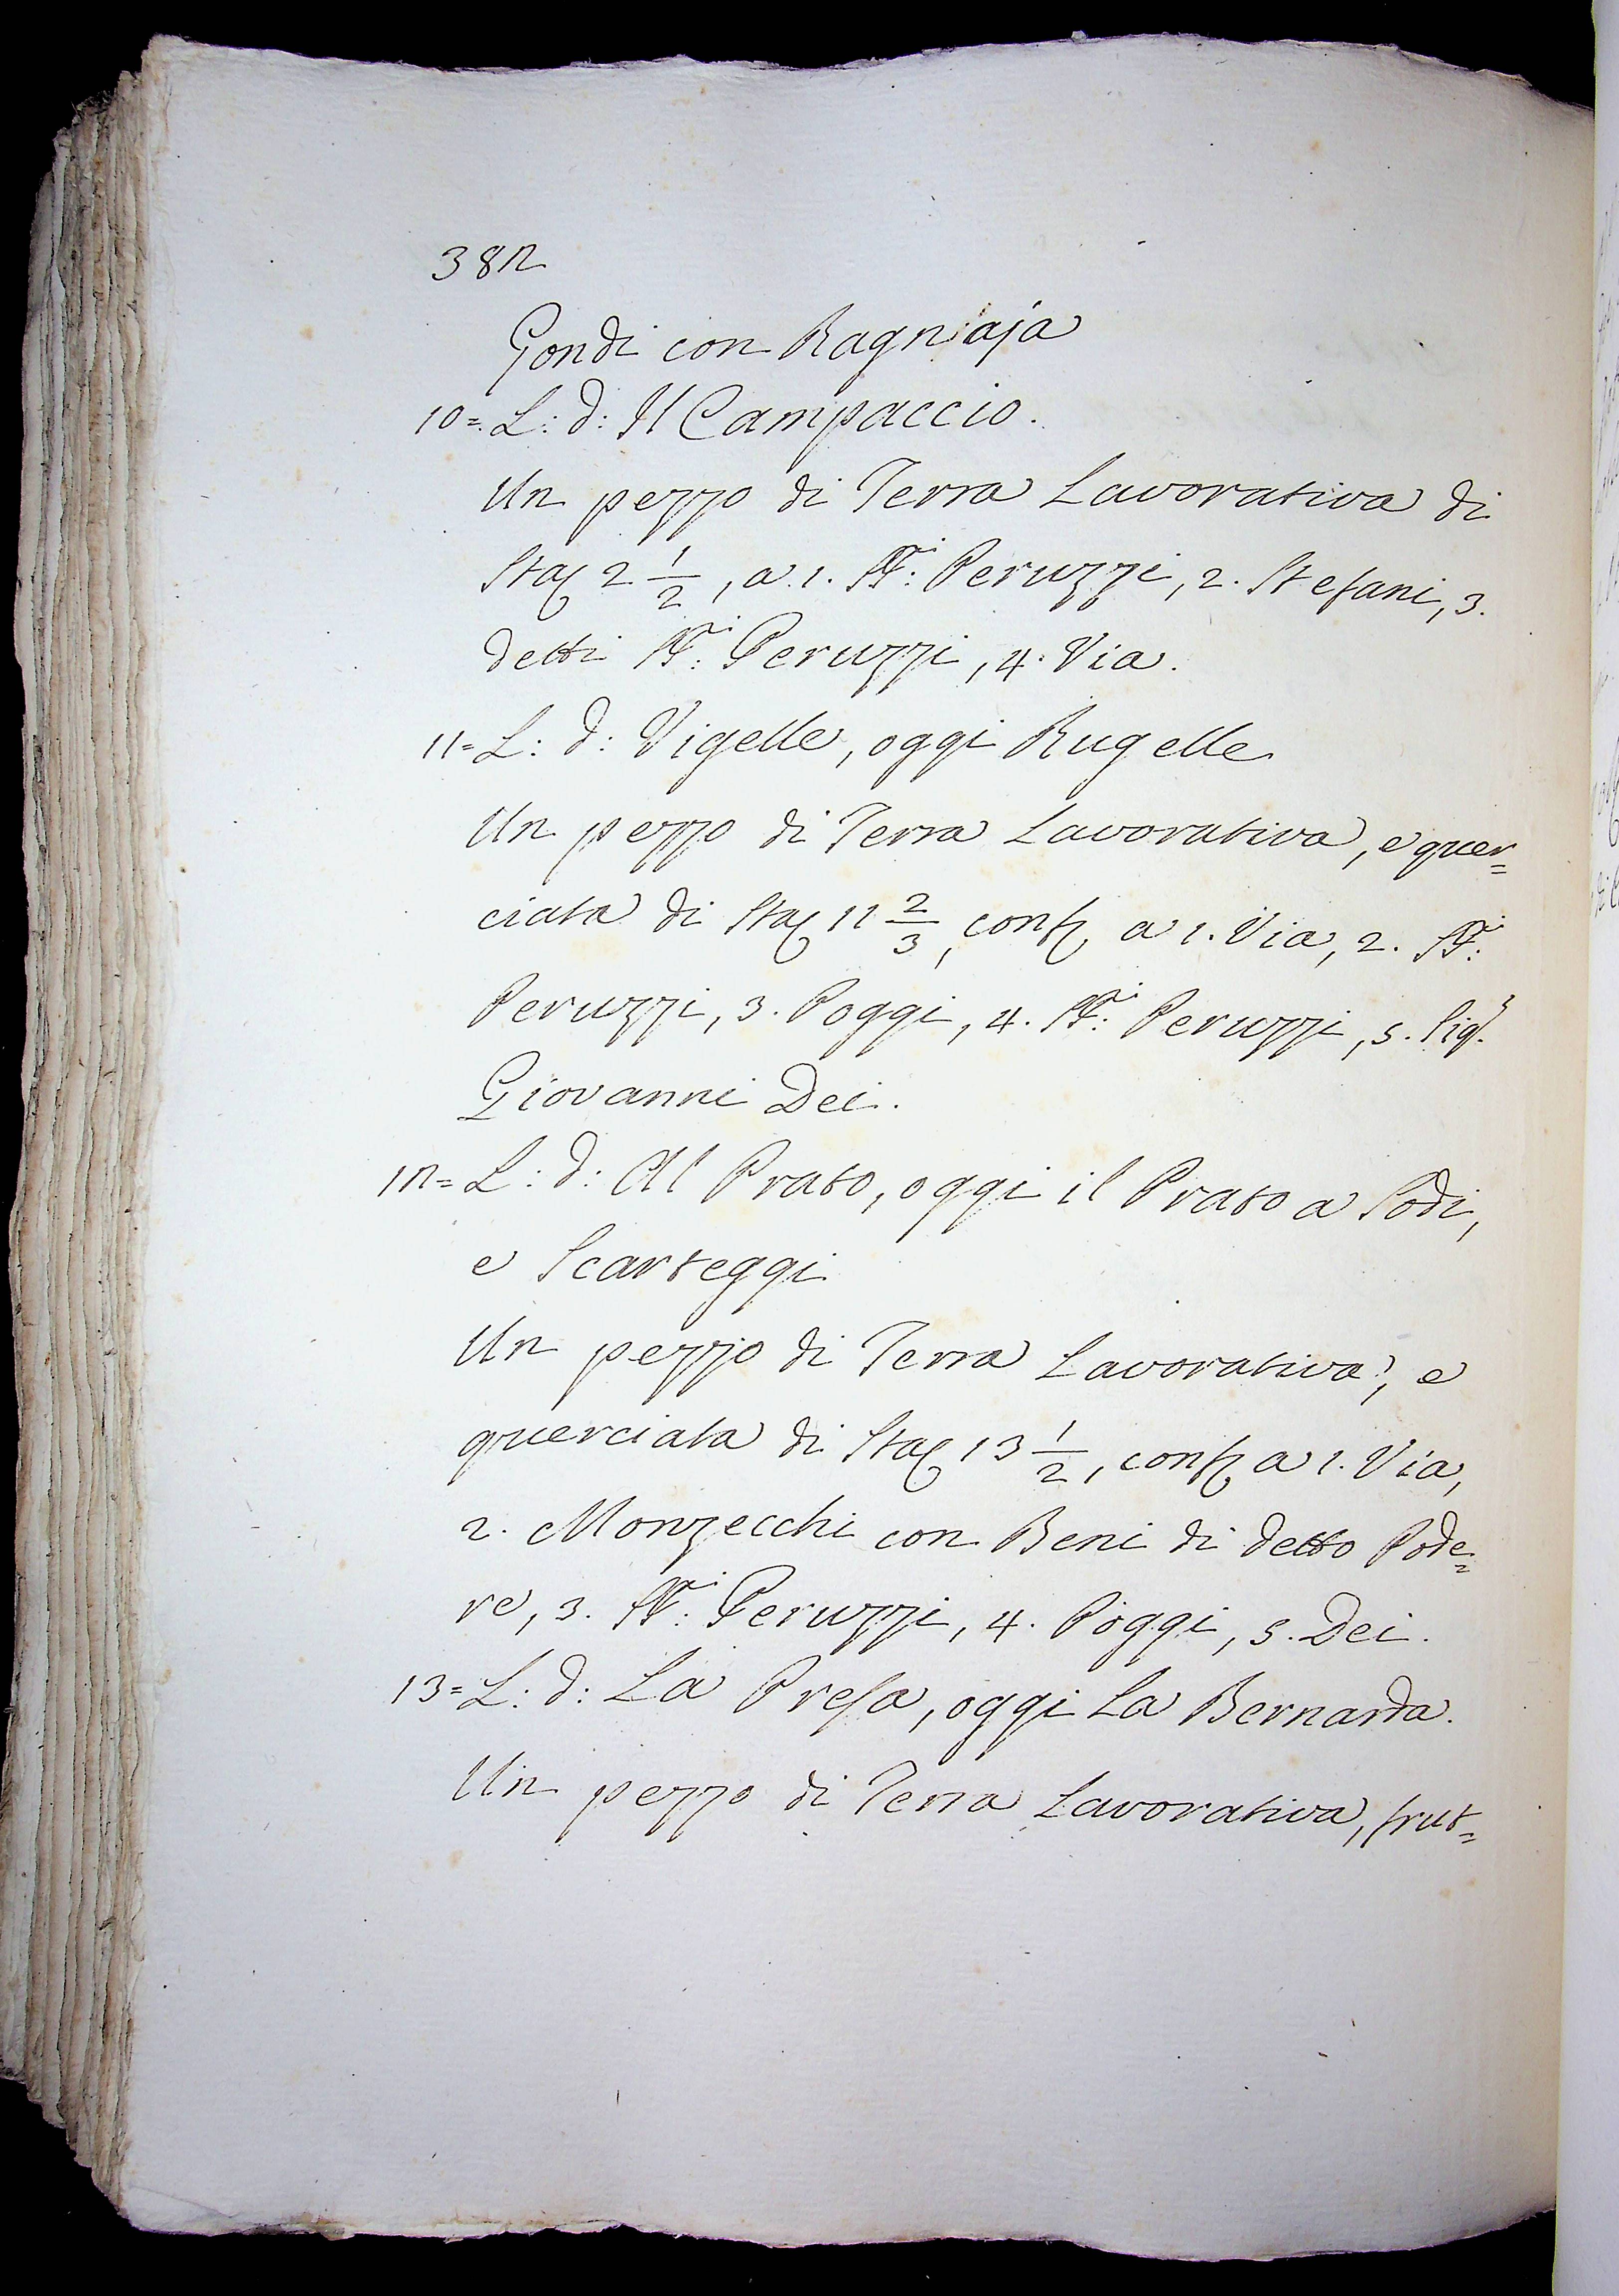 382
Gondi con Ragnaja
10=. L: d: Il Campaccio.
Un pezzo di Terra Lavorativa di
Sta 2 1/2, a 1. SS:ri Peruzzi, 2. Stefani, 3.
detti SS:ri Peruzzi, 4. Via.
11= L: d: Vigelle, oggi Rugelle
Un pezzo di Terra Lavorativa, e quer=
ciata di Sta 11 2/3, conf. a 1. Via, 2. SS:ri
Peruzzi, 3. Poggi, 4. SS:ri Peruzzi, 5. Sigr.
Giovanni Dei.
12= L: d: Al Prato, oggi il Prato a Sodi,
e Scarteggi
Un pezzo di Terra Lavorativa, e
querciata di Sta 13 1/2, conf. a 1. Via,
2. Monzecchi con Beni di detto Pode=
re, 3. SS:ri Peruzzi, 4. Poggi, 5. Dei.
13= L: d: La Presa, oggi La Bernarda.
Un pezzo di Terra Lavorativa, frut=